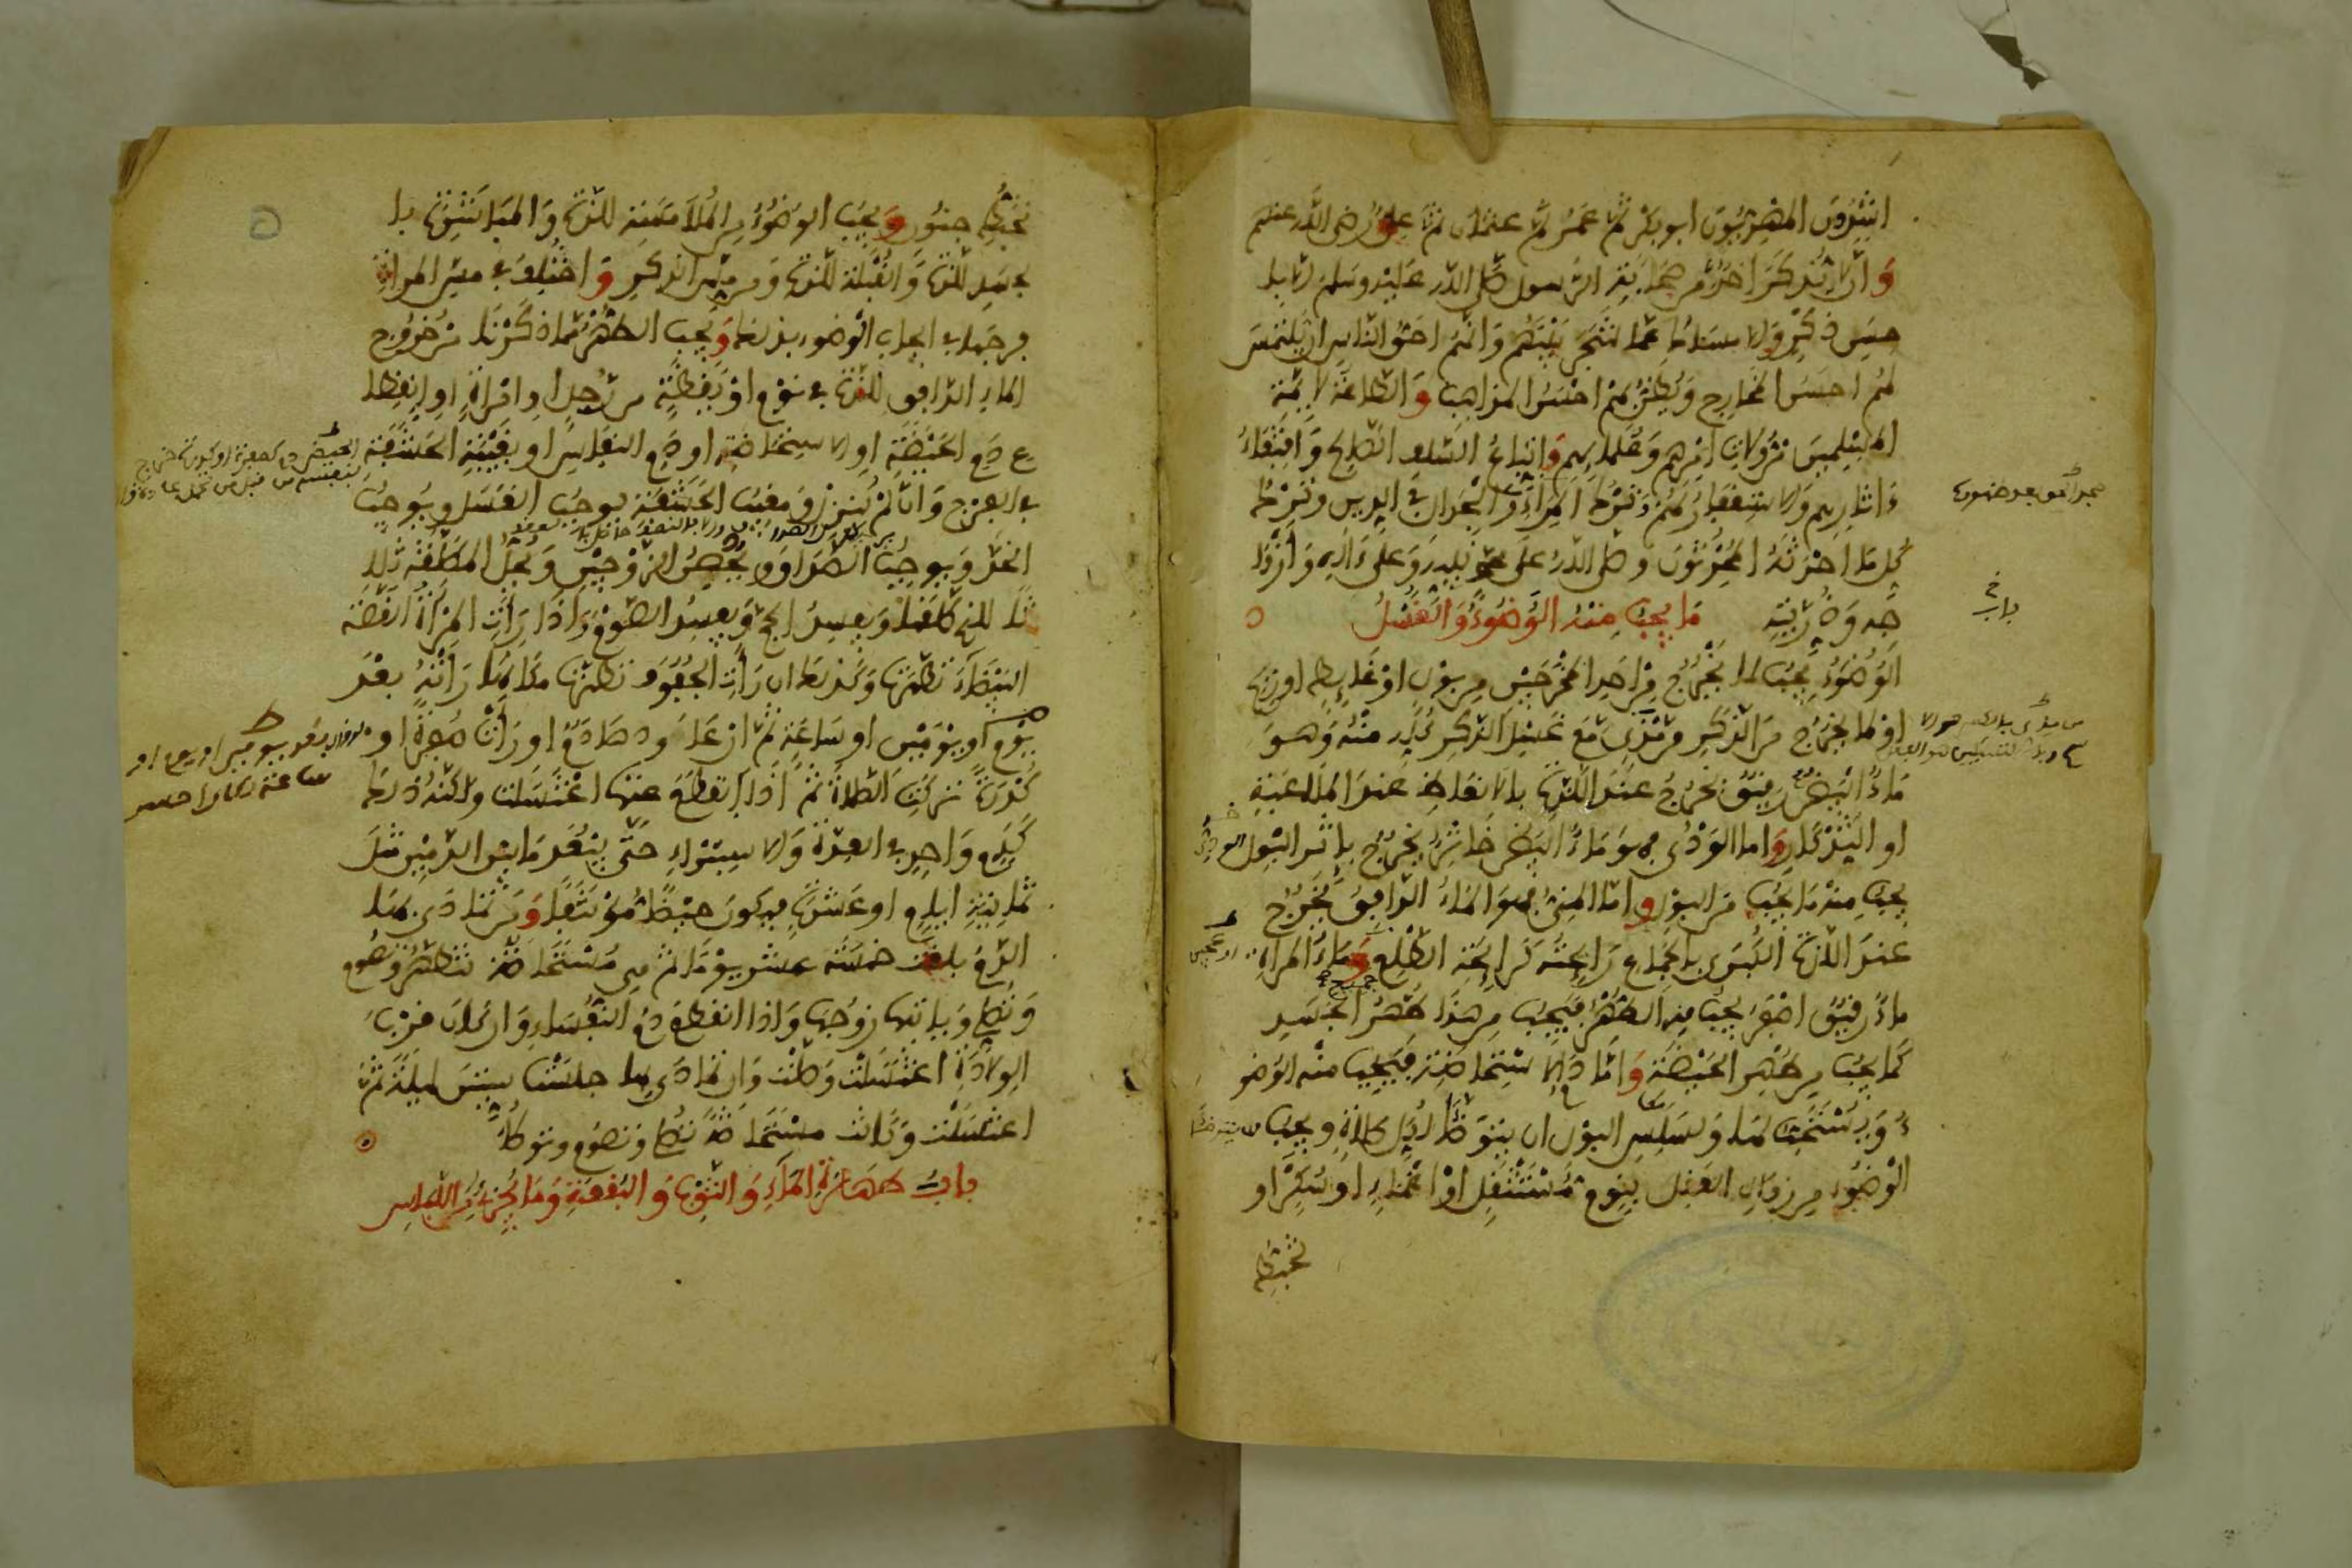 الراشدون المهديون ابو بكر ثم عمر ثم عثمان ثم علي رضي الله عنهم
وان لا يذكر احد من صحابة الرسول صلى الله عليه وسلم الا با
حسن ذكر والامساك عما شجر بينهم وانهم احق الناس ان يلتمس
لهم احسن المخارج ويظن بهم احسن المذاهب والطاعة لايمة
المسلمين من ولاة امرهم وعلمايهم واتباع السلف الصالح واقتفاء
ءاثارهم والاستغفار لهم وترك المراء والجدال في الدين وترك
كل ما احدثه المحدثون وصلى الله على محمد نبيه وعلى ءاله وازوا
جه وذريته ما يجب منه الوضوء والغسل
باب
الوضوء يجب لما يخرج من احد المخرجين من بول او غايط او ريح
او لما يخرج من الذكر من مذي مع غسل الذكر كله منه وهو
ماء ابيض رقيق يخرج عند اللذة بالانعاظ عند الملاعبة
او التذكار واما الودي فهو ماء ابيض خاثر يخرج باثر البول
يجب منه ما يجب من البول واما المني فهو الماء الدافق يخرج
عند اللذة الكبرى بالجماع رايحته كرايحة الطلع وماء المراة
ماء رقيق اصفر يجب منه الطهر فيجب من هذا طهر الجسد
كما يجب من طهر الحيضة واما دم الاستحاضة فيجب منه الوضو
ء ويستحب لها ولسلس البول ان يتوضا لكل صلاة ويجب
الوضوء من زوال العقل بنوم مستثقل او اغماء او سكر او
تخبط
تخبط جنون ويجب الوضوء من الملامسة للذة والمباشرة با
لجسد للذة والقبلة للذة ومن مس الذكر واختلف في مس المراة
فرجها في ايجاب الوضوء بذلك ويجب الطهر مما ذكرنا من خروج
الماء الدافق للذة في نوم او يقظة من رجل او امراة او انقطا
ع دم الحيضة او الاستحاضة او دم النفاس او بمغيب الحشفة
في الفرج وان لم ينزل ومغيب الحشفة يوجب الغسل ويوجب
الحد ويوجب الصداق ويحصن الزوجين ويحل المطلقة ثلا
ثا للذي طلقها ويفسد الحج ويفسد الصوم واذا رات المراة القصة
البيضاء تطهرت وكذلك ان رات الجفوف تطهرت مكانها راته بعد
يوم او يومين او ساعة ثم ان عاودها دم او رات صفرة او
كدرة تركت الصلاة ثم اذا انقطع عنها اغتسلت ولكنه ذلك
كدم واحد في العدة والاستبراء حتى يبعد ما بين الدمين مثل
ثمانية ايام او عشرة فيكون حيضا مؤتنفا ومن تمادى بها
الدم بلغت خمسة عشر يوما ثم هي مستحاضة تتطهر وتصوم
وتصلي وياتيها زوجها واذا انقطع دم النفساء وان كان قرب
الولادة اغتسلت وصلت وان تمادى بها جلست ستين ليلة ثم
اغتسلت وكانت مستحاضة تصلي وتصوم وتوطا
باب طهارة الماء والثوب والبقعة وما يجزئ من اللباس